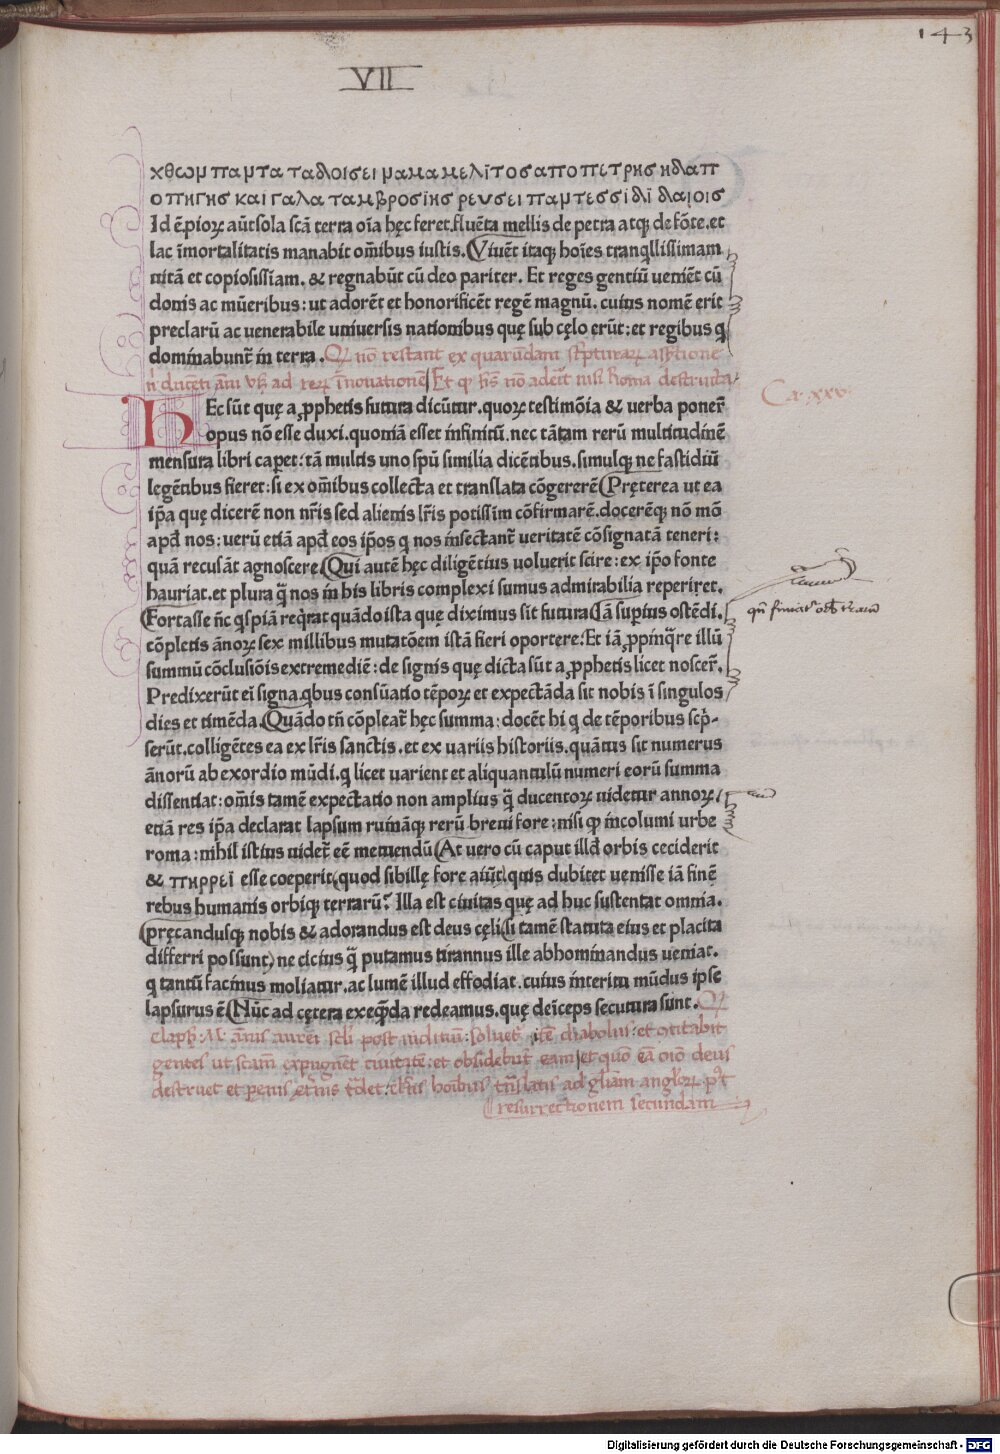 143
VII
χθωμ παμτα ταδοισει μαμα μελῖτοσ απο πετρησ ηδαπ
ο πηγησ και γαλα ταμβροσῖησ ρευσει παμτεσσῖδῖ δλαιοισ
Id ē.pioꝝ aūt sola scā terra oīa hęc feret.fluēta mellis de petra atqꝫ de fōte.et
lac īmortalitatis manabit oībus iustis.(Viuēt itaqꝫ hoīes tranqllissimam
uitā et copiosissīam.& regnabūt cū deo pariter. Et reges gentiū ueniēt cū
donis ac mūeribus:ut adorēt et honorificēt regē magnū.cuius nomē erit
preclarū ac uenerabile uniuersis nationibus quę sub cęlo erūt:et regibus q̄
dominabunt̄ in terra. Qꝫ nō restant ex quarūdam scripturaꝝ assertione
nⁱ ducēti ām vsꝫ ad reꝝ īnouationē Et qꝫ hīs nō aderit nisi Roma destructa
Ca. xxv.
HEc sūt quę a ꝓphetis futura dicūtur.quoꝝ testimōia & uerba ponere̅
opus nō esse duxi.quoniā esset infinitū.nec tātam rerū multitudinē
mensura libri caperet:tā multis uno spū similia dicētibus.simulqꝫ ne fastidiū
legētibus fieret:si ex omībus collecta et translata cōgererē(Pręterea ut ea
ip̄a quę dicerē non nr̄is sed alienis lr̄is potissim cōfirmarē.docerēqꝫ nō mō
apd nos:uerū etiā apd eos ip̄os q nos insectant̄ ueritatē cōsignatā teneri:
quā recusāt agnoscere.(Qui autē hęc diligētius uoluerit scire:ex ip̄o fonte
hauriat.et plura q̄ nos in his libris complexi sumus admirabilia reperiret.
(Fortasse n̄c qspiā reqrat quādo ista quę diximus sit futura(Iā supius ostēdi.
cōpletis ānoꝝ sex millibus mutatōem istā fieri oportere:Et iā ꝓpinqre illū
summū cōclusiōis extremediē:de signis quę dicta sūt a ꝓphetis licet noscer̄.
Predixerūt eī signa.qbus consūatio tēpoꝝ et expectāda sit nobis ī singulos
dies et timēda.(Quādo tn̄ cōpleat̄ hęc summa:docēt hi q de tēporibus scp-
serūt.colligētes ea ex lr̄is sanctis.et ex uariis historiis.quātus sit numerus
ānorū ab exordio mūdi.q licet uarient et aliquantulū numeri eorū summa
dissentiat:omīs tamē expectatio non amplius q̄ ducentoꝝ uidetur annoꝝ
etiā res ip̄a declarat lapsum ruināqꝫ rerū breui fore:nisi qꝫ incolumi urbe
roma:nihil istius uidet̄ eē metuendū(At uero cū caput illd orbis ceciderit
& πηρρεῖ esse coeperit(quod sibillę fore aiūt)quis dubitet uenisse iā finē
rebus humanis orbiqꝫ terrarū? Illa est ciuitas quę ad huc sustentat omnia.
(pręcandusqꝫ nobis & adorandus est deus cęli(si tamē statuta eius et placita
differri possunt)ne citius q̄ putamus tirannus ille abhominandus ueniat.
q tantū facinus moliatur.ac lumē illud effodiat.cuius interitu mūdus ipse
lapsurus ē(Nūc ad cętera exeqn̄da redeamus.quę deīceps secutura sunt. Qꝫ
elapsꝭ M. ānis aurei scli post iuditiū:soluet̄ itē diabolus:et cōcitabit
gentes ut scām expugnēt ciuitatē:et obsidebūt eam et quō eā oīo deus
destruet et penis et̄nis tdet.
resurrectionem secundam